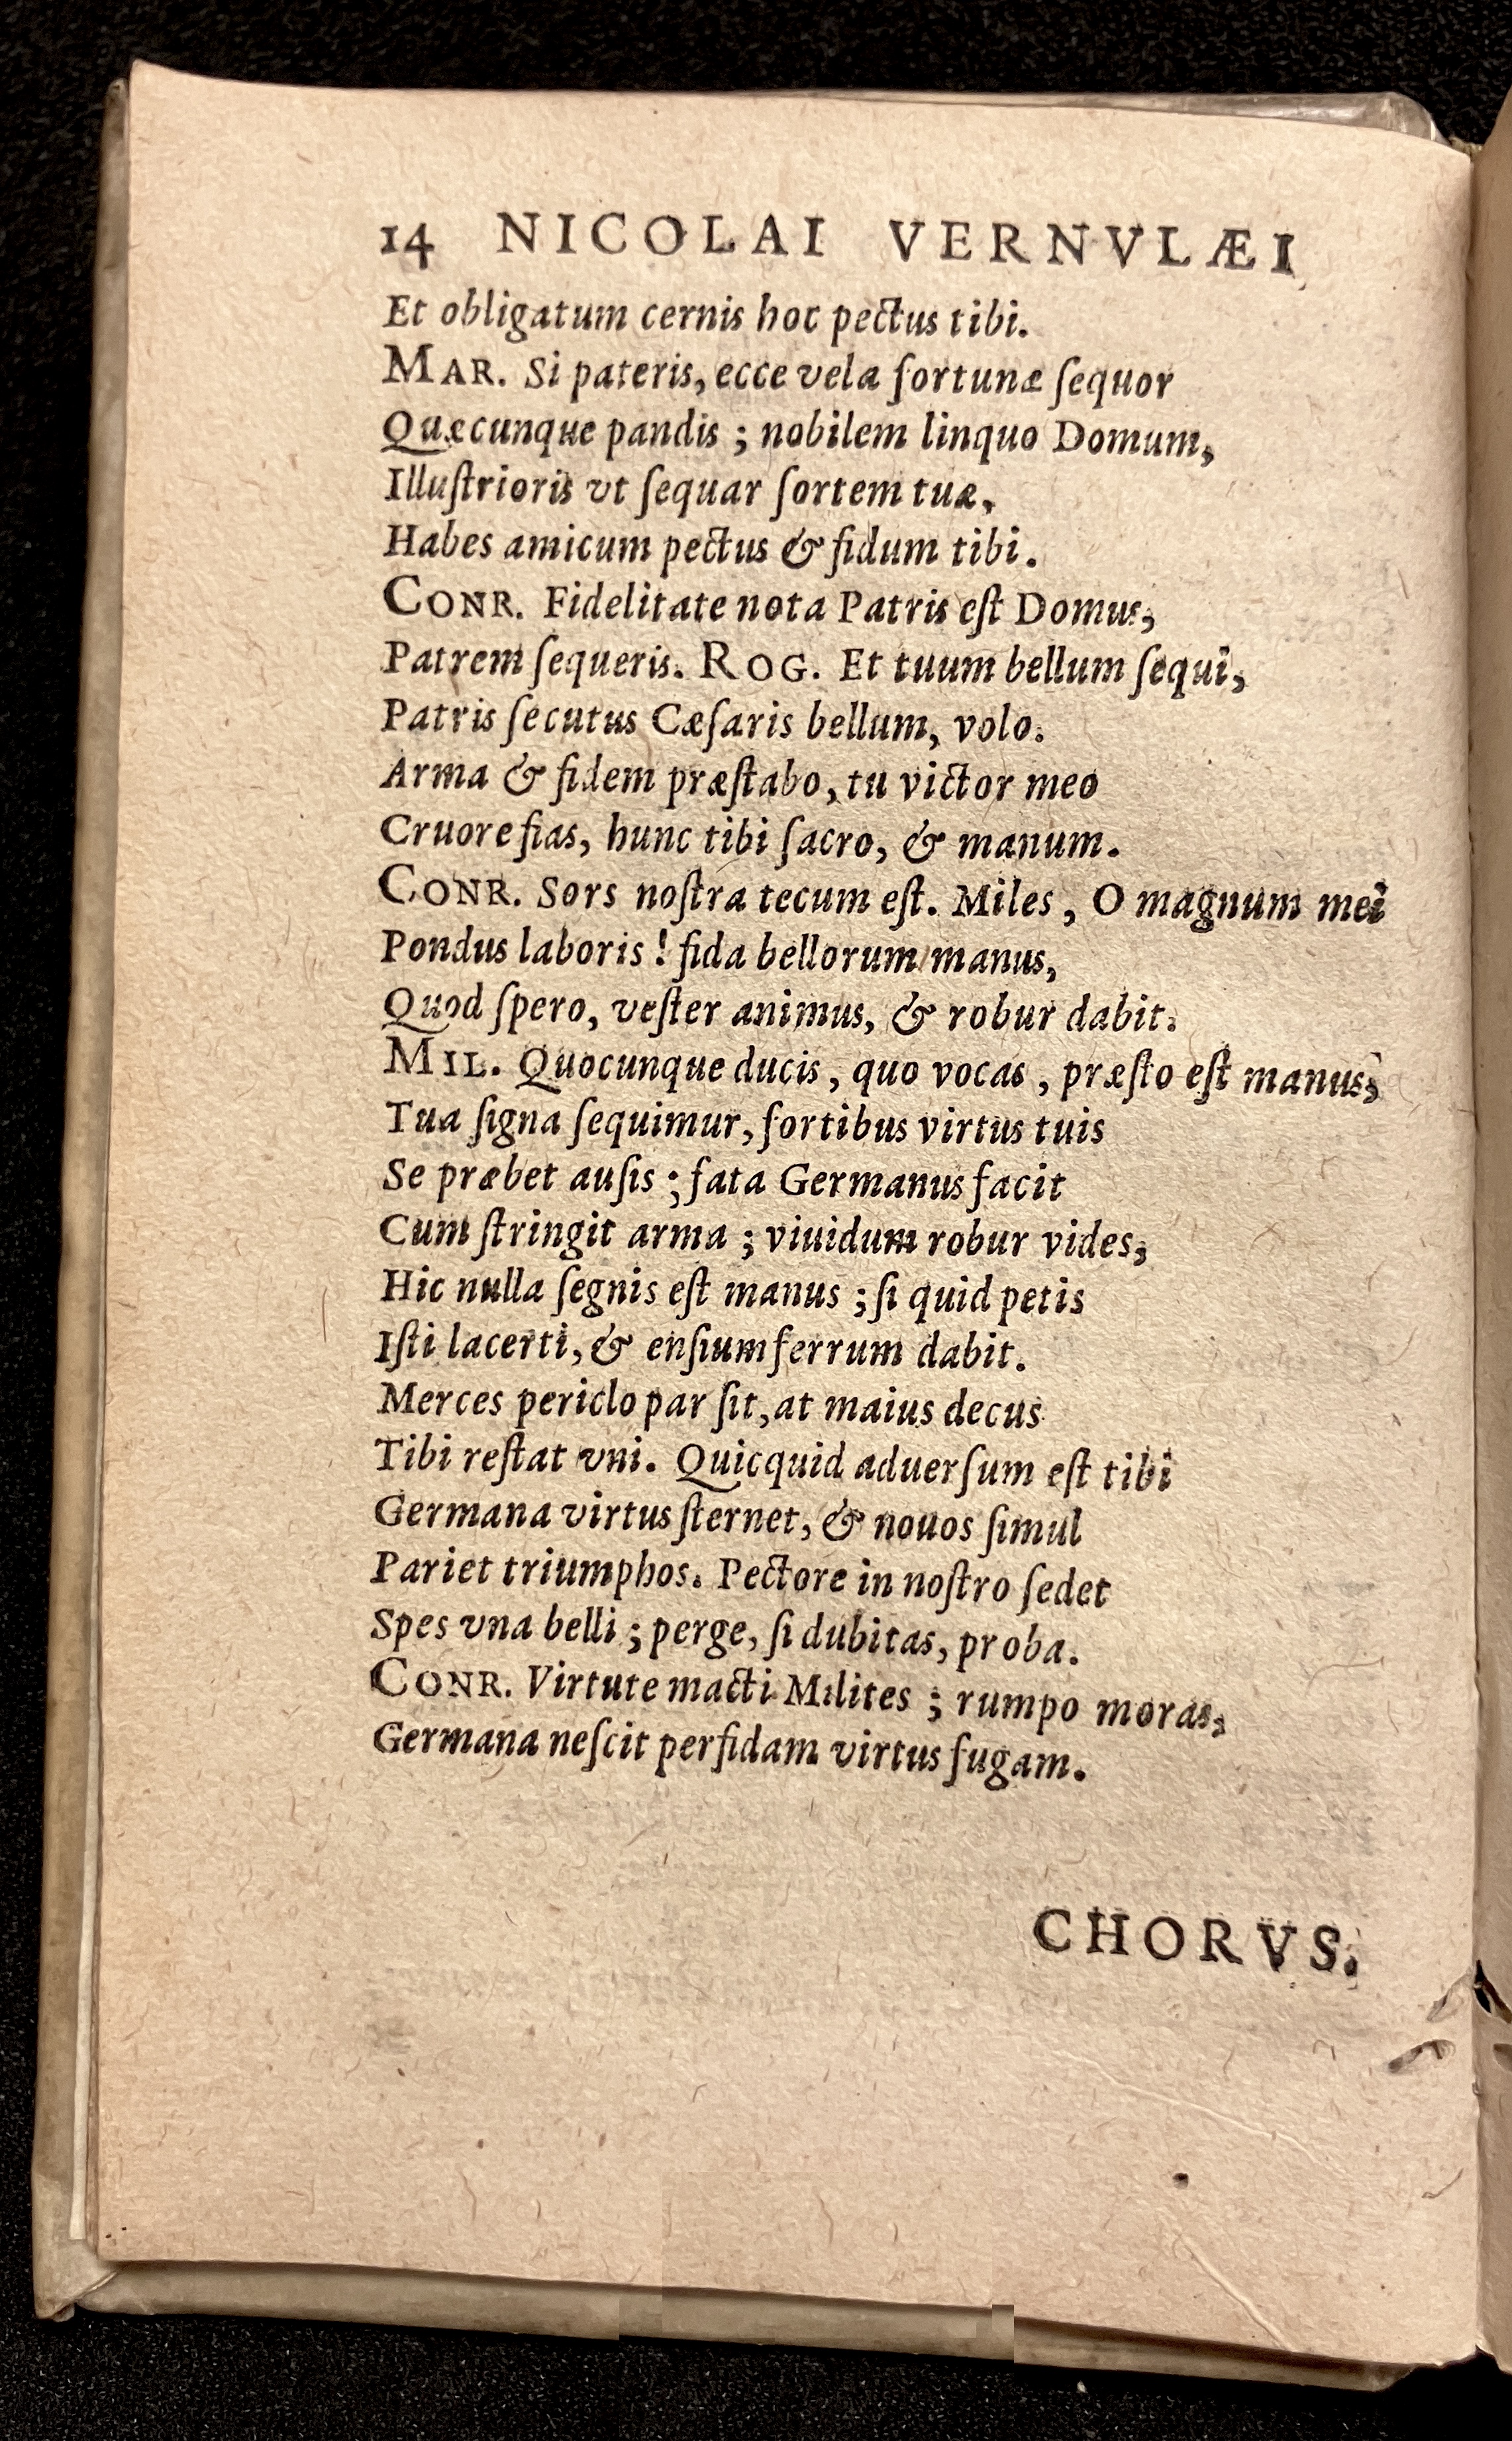 14 NICOLAI VERNVLÆI
Et obligatum cernis hoc pectus tibi.
MAR. Si pateris, ecce vela fortunæ ſequor
Quæcunque pandis ; nobilem linquo Domum,
Illuſtrioris vt ſequar ſortem tuæ,
Habes amicum pectus & fidum tibi.
CONR. Fidelitate nota Patris eſt Domus,
Patrem ſequeris. ROG. Et tuum bellum ſequi,
Patris ſecutus Cæſaris bellum, volo.
Arma & fidem præſtabo, tu victor meo
Cruore fias, hunc tibi ſacro, & manum.
CONR. Sors noſtra tecum eſt. Miles, O magnum mei
Pondus laboris ! fida bellorum manus,
Quod ſpero, veſter animus, & robur dabit.
MIL. Quocunque ducis, quo vocas, præſto eſt manus,
Tua ſigna ſequimur, fortibus virtus tuis
Se præbet auſis ; fata Germanus facit
Cum ſtringit arma ; viuidum robur vides,
Hic nulla ſegnis eſt manus ; ſi quid petis
Iſti lacerti, & enſium ferrum dabit.
Merces periclo par ſit, at maius decus
Tibi reſtat vni. Quicquid aduerſum eſt tibi
Germana virtus ſternet, & nouos ſimul
Pariet triumphos. Pectore in noſtro ſedet
Spes vna belli ; perge, ſi dubitas, proba.
CONR. Virtute macti Milites ; rumpo moras,
Germana neſcit perfidam virtus fugam.
CHORVS.